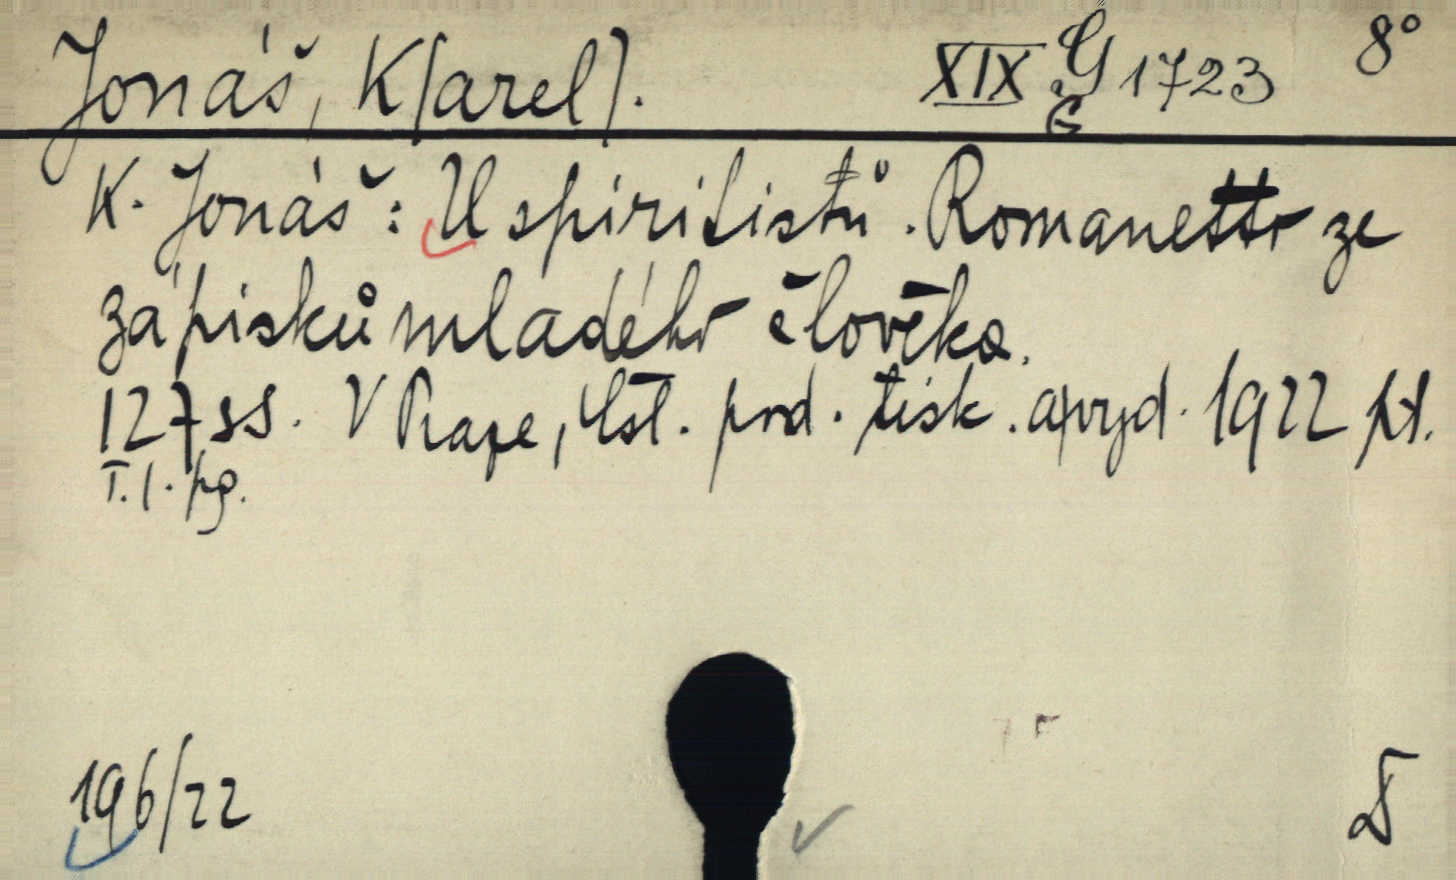 Jonáš, K[arel]. XIX G 1723 8°
G
K. Jonáš: U spiritistů. Romanetto ze
zápisků mladého člověka.
127 ss. V Praze, Čsl. pod. tisk. a vyd. 1922 pt.
T. l. pg.
196/22